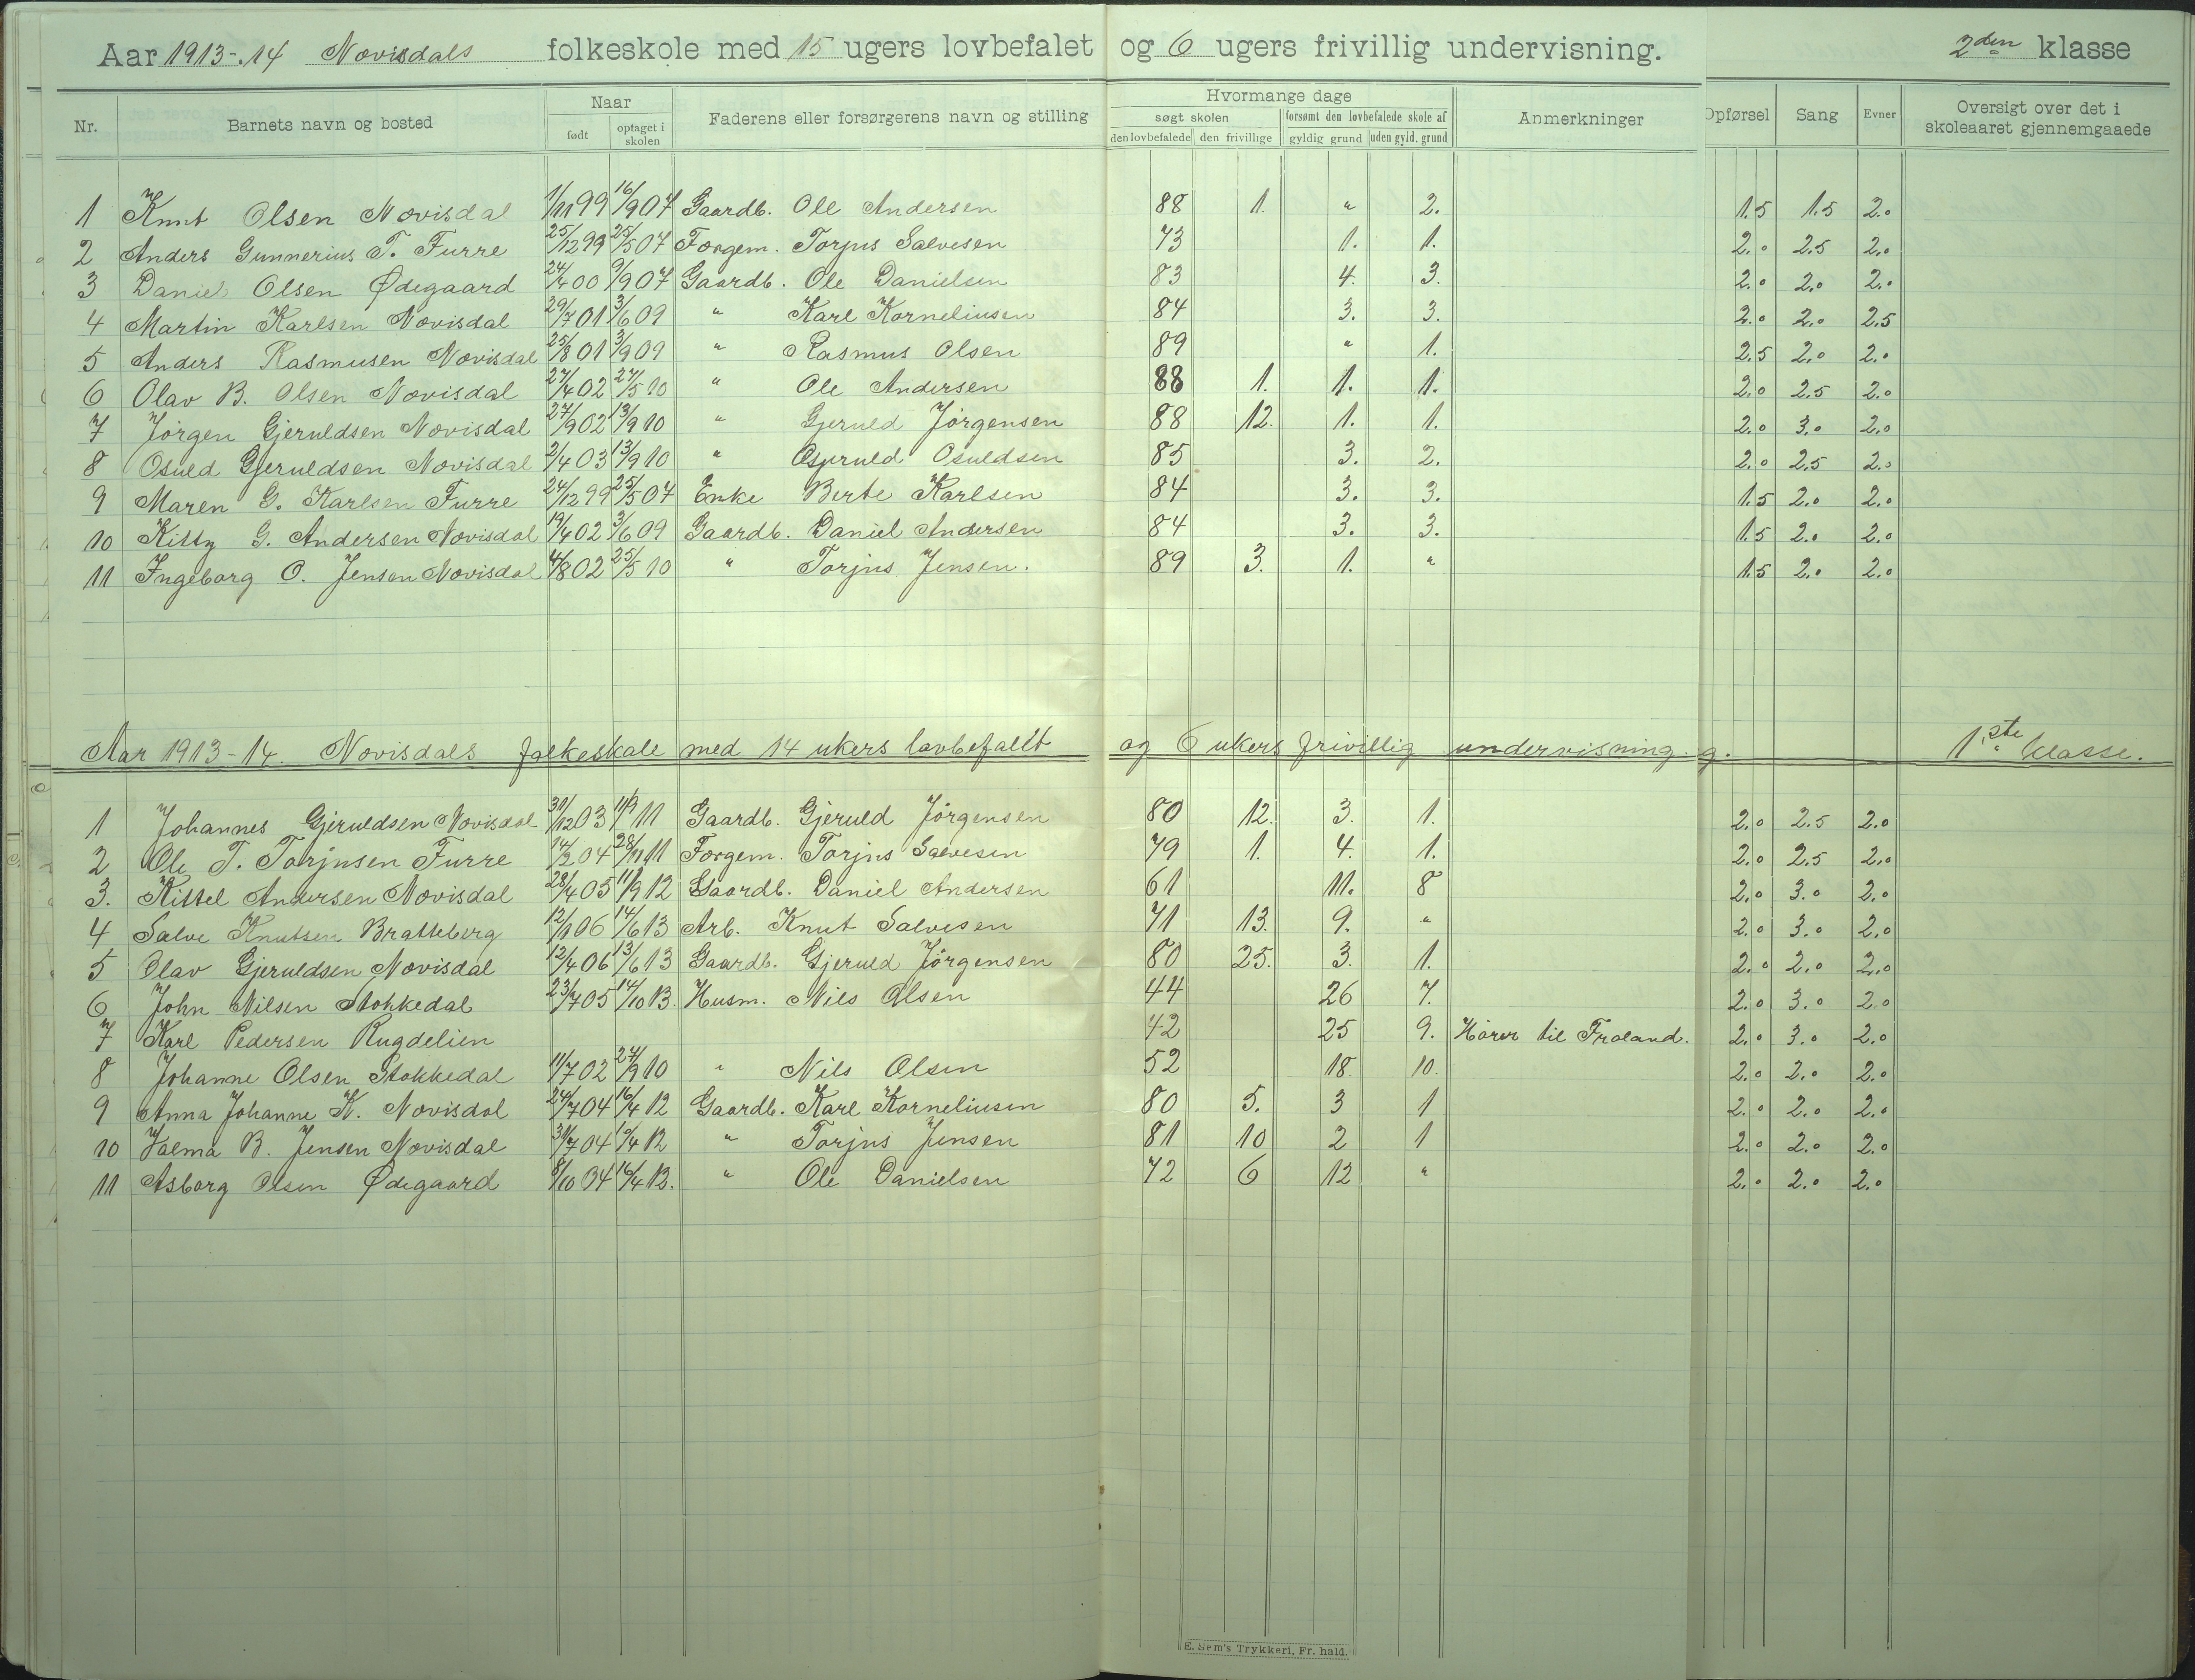 Aar 1913-.14 Novisdals folkeskole med 15 ugers lovbefalet og 6 ugers frivillig undervisning. 2den klasse
Nr. Barnets navn og bosted Naar Faderens eller forsørgerens navn og stilling Hvormange dage Anmerkninger Opførsel Sang Evner Oversigt over det i skoleaaret gjennemgaaede
født optaget i skolen søgt skolen forsømt den lovbefalede skole af
den lovbefalede den frivillige gyldig grund uden gyld. grund
1 Knut Olsen Novisdal 1/11 99 16/9 07 Gaardb. Ole Andersen 88 1. " 2. 1.5 1.5 2.0
2 Anders Gunnerius T. Furre 25/12 99 25/5 07 Forgem. Torjus Salvesen 73 1. 1. 2.0 2.5 2.0
3 Daniel Olsen Ødegaard 24/4 00 9/9 07 Gaardb. Ole Danielsen 83 4. 3. 2.0 2.0 2.0
4 Martin Karlsen Novisdal 29/7 01 3/6 09 " Karl Korneliusen 84 3. 3. 2.0 2.0 2.5
5 Anders Rasmusen Novisdal 25/8 01 3/9 09 " Rasmus Olsen 89 " 1. 2.5 2.0 2.0
6 Olav B. Olsen Novisdal 27/4 02 27/5 10 " Ole Andersen 88 1. 1. 1. 2.0 2.5 2.0
7 Jørgen Gjeruldsen Novisdal 27/9 02 13/9 10 " Gjeruld Jørgensen 88 12. 1. 1. 2.0 3.0 2.0
8 Osuld Gjeruldsen Novisdal 2/4 03 13/9 10 " Gjeruld Osuldsen 85 3. 2. 2.0 2.5 2.0
9 Maren G. Karlsen Furre 24/12 99 25/5 07 Enke Berte Karlsen 84 3. 3. 1.5 2.0 2.0
10 Kitty G. Andersen Novisdal 19/4 02 3/6 09 Gaardb. Daniel Andersen 84 3. 3. 1.5 2.0 2.0
11 Ingeborg O. Jensen Novisdal 4/8 02 25/5 10 " Torjus Jensen. 89 3. 1. " 1.5 2.0 2.0
Aar 1913-14. Novisdals folkeskole med 14 ukers lovbefallt og 6 ukers frivillig undervisning. g. 1.ste klasse.
1 Johannes Gjeruldsen Novisdal 31/12 03 11/9 11 Gaardb. Gjeruld Jørgensen 80 12. 3. 1. 2.0 2.5 2.0
2 Ole T. Torjusen Furre 14/2 04 28/11 11 Forgem. Torjus Salvesen 79 1. 4. 1. 2.0 2.5 2.0
3. Kittel Andersen Novisdal 28/4 05 11/9 12 Gaardb. Daniel Andersen 61 11. 8 2.0 3.0 2.0
4 Salve Knutsen Bratteberg 12/1 06 14/6 13 Arb. Knut Salvesen 71 13. 9. " 2.0 3.0 2.0
5 Olav Gjeruldsen Novisdal 12/4 06 13/6 13 Gaardb. Gjeruld Jørgensen 80 25. 3. 1. 2.0 2.0 2.0
6 John Nilsen Stokkedal 23/7 05 14/10 13. Husm. Nils Olsen 44 26 7. 2.0 3.0 2.0
7 Karl Pedersen Rugdelien 42 25 9. Hører til Froland. 2.0 3.0 2.0
8 Johanne Olsen Stokkedal 11/7 02 24/9 10 " Nils Olsen 52 18. 10. 2.0 2.0 2.0
9 Anna Johanne K. Novisdal 24/7 04 16/4 12 Gaardb. Karl Korneliusen 80 5. 3 1 2.0 2.0 2.0
10 Valma B. Jensen Novisdal 31/7 04 12 " Torjus Jensen 81 10 2 1 2.0 2.0 2.0
11 Asborg Olsen Ødegaard 8/10 04 16/4 12. " Ole Danielsen 72 6 12 " 2.0 2.0 2.0
E. Sem's Trykkeri, Fr. hald.